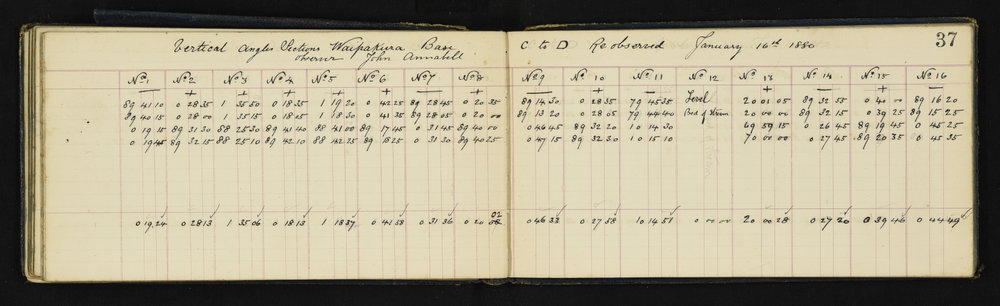 Vertical Angles Sections Waipakura Base C to D Re observed January 16th 1880 37
observer John Annabell
No 1 No 2 No 3 No 4 No 5 No 6 No 7 No 8 No 9 No 10 No 11 No 12 No 13 No 14 No 15 No 16
— + + + + + — + — + — + — + —
89 41 10 0 28 35 1 35 50 0 18 35 1 19 20 0 42 25 89 28 45 0 20 35 89 14 30 0 28 35 79 45 35 Level 20 01 05 89 32 55 0 40 00 89 16 20
89 40 15 0 28 00 1 35 15 0 18 25 1 18 30 0 41 35 89 28 05 0 20 00 89 13 20 0 28 05 79 44 40 Bed of Stream 20 00 00 89 32 15 0 39 25 89 15 25
0 19 15 89 31 30 88 25 30 89 41 40 88 41 00 89 17 45 0 31 45 89 40 00 0 46 45 89 32 20 10 14 30 69 59 15 0 26 45 89 19 45 0 45 25
0 19 45 89 32 15 88 25 10 89 42 10 88 42 25 89 18 25 0 31 30 89 40 25 0 47 15 89 32 30 10 15 10 70 00 00 0 27 45 89 20 35 0 45 35
0 19 24 0 28 13 1 35 06 0 18 13 1 18 37 0 41 58 0 31 36 0 20 02 0 46 33 0 27 58 10 14 51 0 00 00 20 00 28 0 27 20 0 39 46 0 44 49